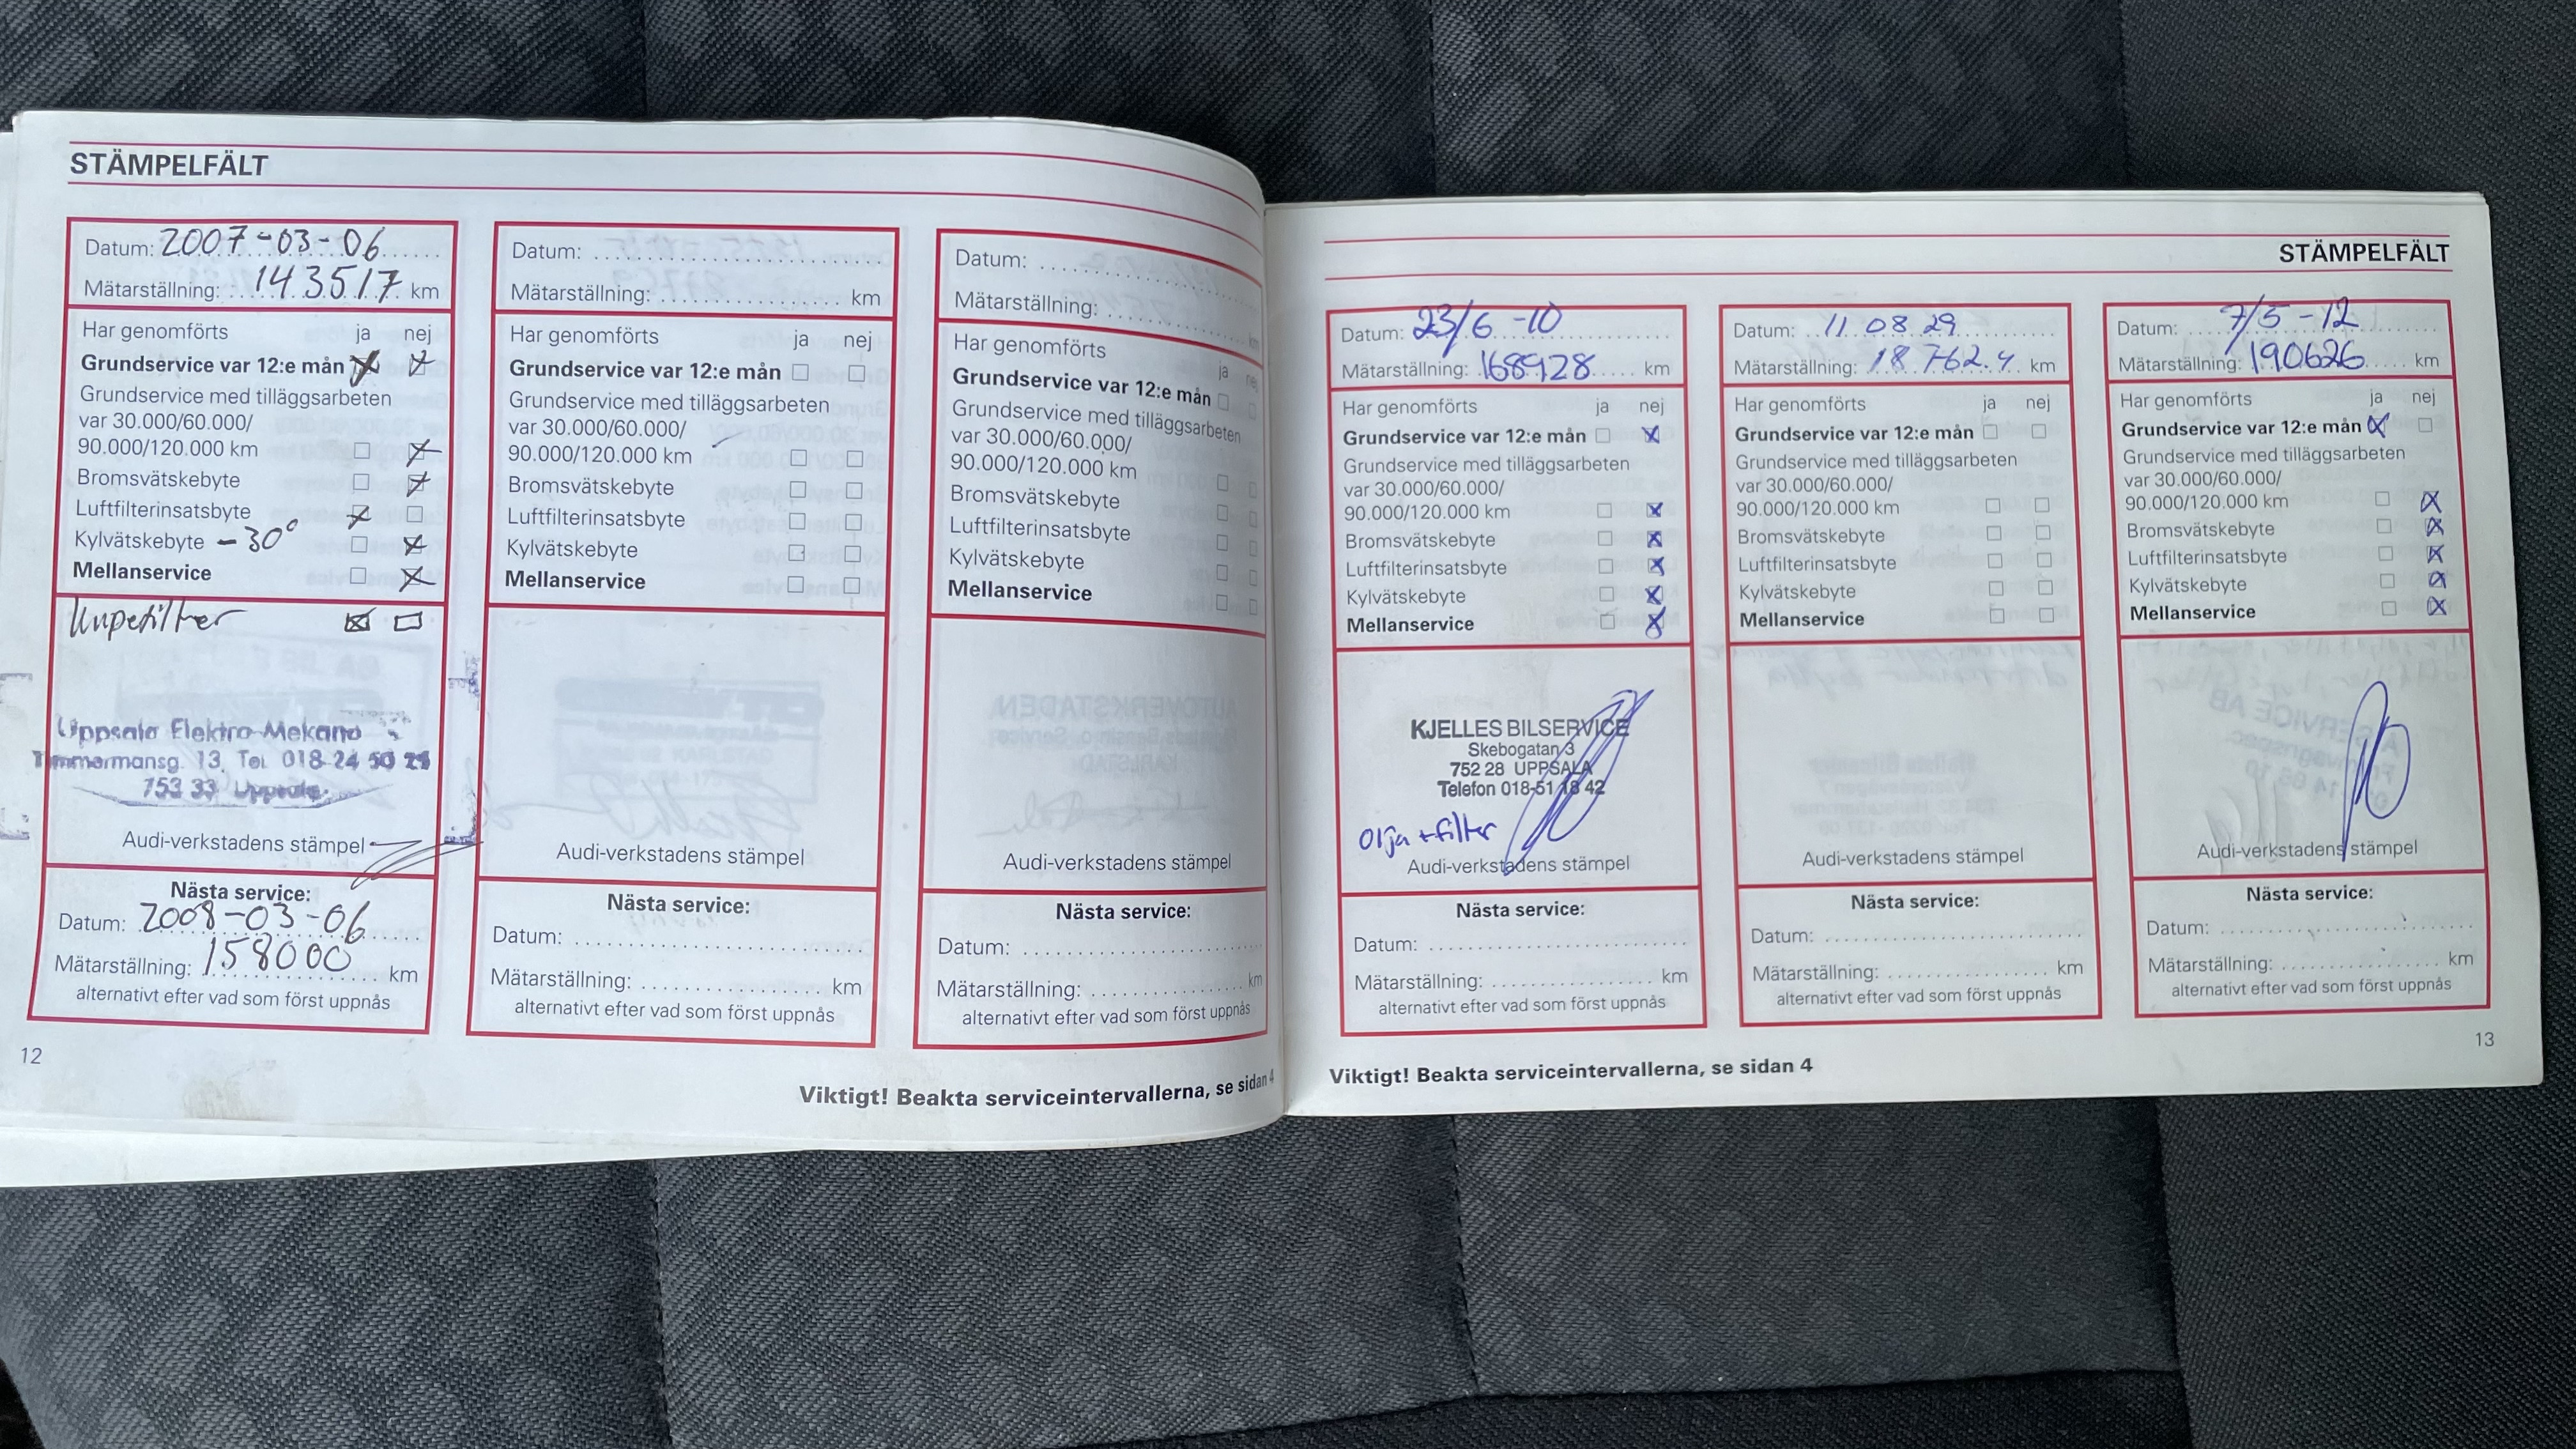 STÄMPELFÄLT
Datum: 2007-03-06
Mätarställning: 143517 km
Har genomförts ja nej
Grundservice var 12:e mån
Grundservice med tilläggsarbeten
var 30.000/60.000/
90.000/120.000 km
Bromsvätskebyte
Luftfilterinsatsbyte
Kylvätskebyte -30°
Mellanservice
Kupefilter
Uppsala Elektro-Mekano
Timmermansg. 13, Tel. 018-24 50 25
753 33 Uppsala
Audi-verkstadens stämpel
Nästa service:
Datum: 2008-03-06
Mätarställning: 158000 km
alternativt efter vad som först uppnås
Datum:
Mätarställning: km
Har genomförts ja nej
Grundservice var 12:e mån
Grundservice med tilläggsarbeten
var 30.000/60.000/
90.000/120.000 km
Bromsvätskebyte
Luftfilterinsatsbyte
Kylvätskebyte
Mellanservice
Audi-verkstadens stämpel
Nästa service:
Datum:
Mätarställning: km
alternativt efter vad som först uppnås
Datum:
Mätarställning: km
Har genomförts ja nej
Grundservice var 12:e mån
Grundservice med tilläggsarbeten
var 30.000/60.000/
90.000/120.000 km
Bromsvätskebyte
Luftfilterinsatsbyte
Kylvätskebyte
Mellanservice
Audi-verkstadens stämpel
Nästa service:
Datum:
Mätarställning: km
alternativt efter vad som först uppnås
12
Viktigt! Beakta serviceintervallerna, se sidan 4
STÄMPELFÄLT
Datum: 23/6 -10
Mätarställning: 168928 km
Har genomförts ja nej
Grundservice var 12:e mån
Grundservice med tilläggsarbeten
var 30.000/60.000/
90.000/120.000 km
Bromsvätskebyte
Luftfilterinsatsbyte
Kylvätskebyte
Mellanservice
KJELLES BILSERVICE
Skebogatan 3
752 28 UPPSALA
Telefon 018-51 18 42
Olja + filter
Audi-verkstadens stämpel
Nästa service:
Datum:
Mätarställning: km
alternativt efter vad som först uppnås
Datum: 11 08 29
Mätarställning: 18762.4 km
Har genomförts ja nej
Grundservice var 12:e mån
Grundservice med tilläggsarbeten
var 30.000/60.000/
90.000/120.000 km
Bromsvätskebyte
Luftfilterinsatsbyte
Kylvätskebyte
Mellanservice
Audi-verkstadens stämpel
Nästa service:
Datum:
Mätarställning: km
alternativt efter vad som först uppnås
Datum: 7/5 -12
Mätarställning: 190626 km
Har genomförts ja nej
Grundservice var 12:e mån
Grundservice med tilläggsarbeten
var 30.000/60.000/
90.000/120.000 km
Bromsvätskebyte
Luftfilterinsatsbyte
Kylvätskebyte
Mellanservice
Audi-verkstadens stämpel
Nästa service:
Datum:
Mätarställning: km
alternativt efter vad som först uppnås
Viktigt! Beakta serviceintervallerna, se sidan 4
13